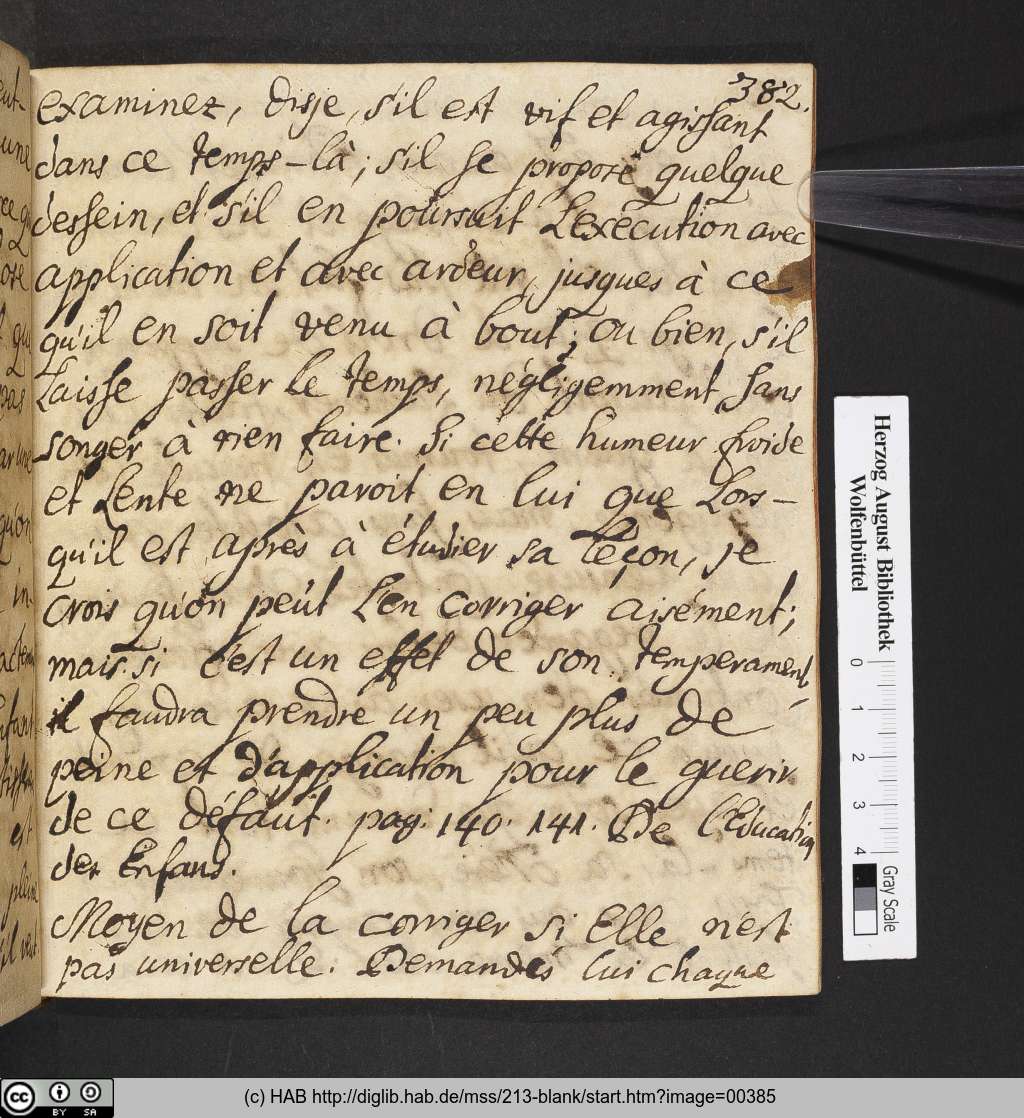 382.
examinez, disje, s'il est vif et agissant
dans ce temps-là; s'il se propose quelque
dessein, et s'il en poursuit L'exécution avec
application et avec ardeur, jusques à ce
qu'il en soit venu à bout; ou bien, s'il
Laisse passer le temps, négligemment sans
songer à rien faire. Si cette humeur froide
et Lente ne paroit en lui que Lors-
qu'il est après à étudier sa Leçon, je
crois qu'on peut L'en corriger aisément;
mais si c'est un effet de son temperament,
il faudra prendre un peu plus de
peine et d'application pour le guerir
de ce défaut. pag. 140. 141. De l'Education
des Enfans.
Moyen de la corriger si Elle n'est
pas universelle. Demandés lui chaque
Herzog August Bibliothek
Wolfenbüttel
0 1 2 3 4
Gray Scale
cc BY SA
(c) HAB http://diglib.hab.de/mss/213-blank/start.htm?image=00385